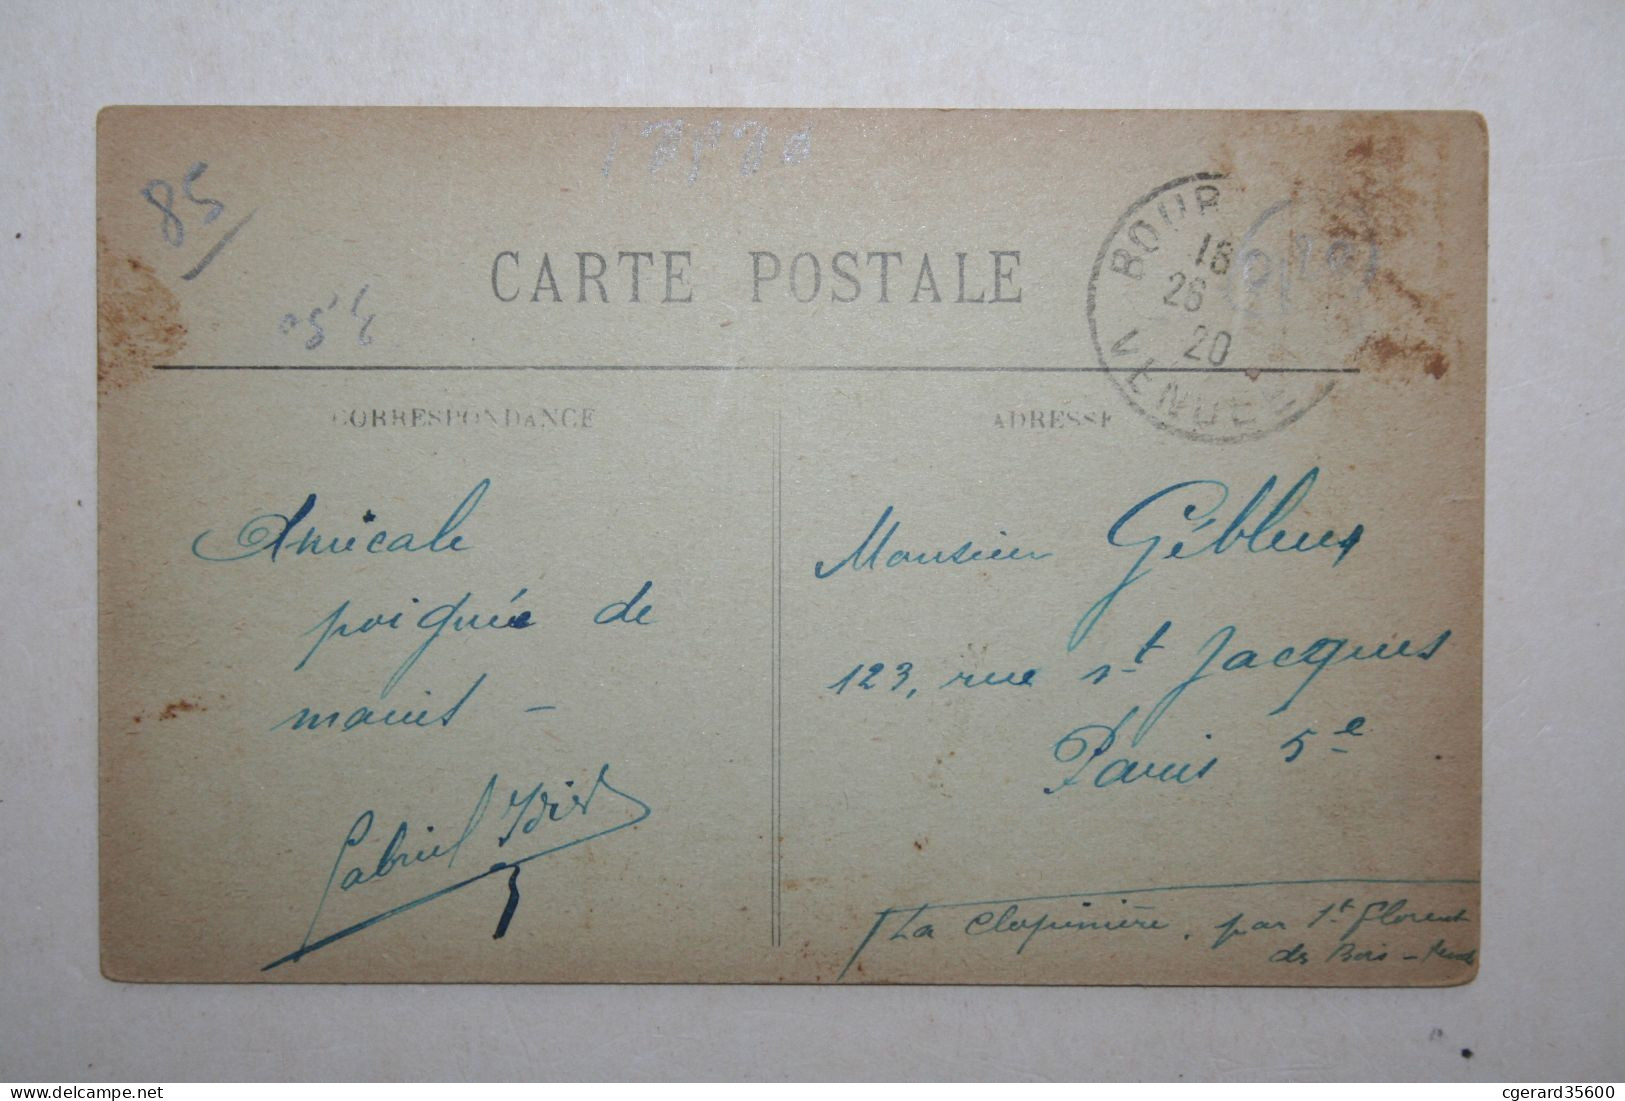 85
CARTE POSTALE
BOUR
18
26
20
VENDEE
CORRESPONDANCE
ADRESSE
Amicale
poignée de
mains -
Gabriel
Monsieur Gébleux
123, rue St Jacques
Paris 5e
La Clopinière, par St Florent
des Bois - Vendée
cgerard35600